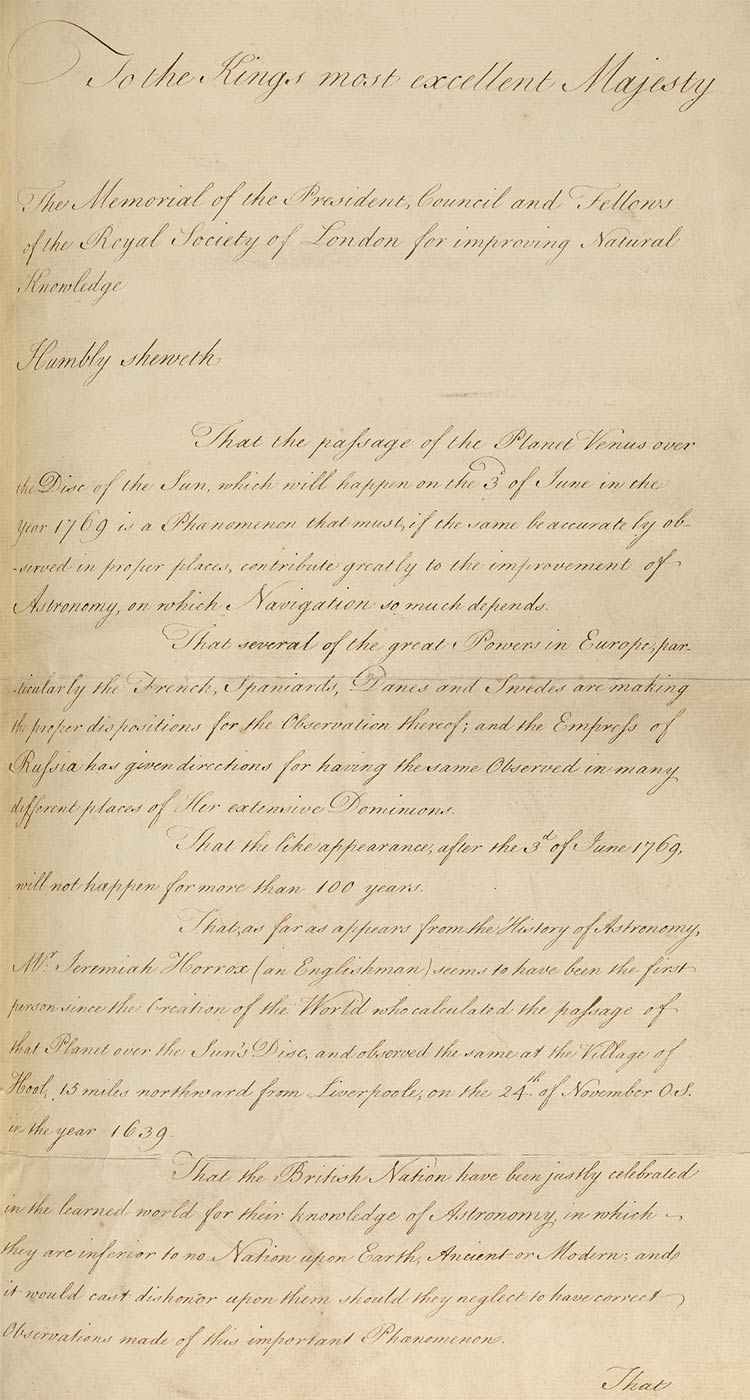 To the Kings most excellent Majesty
The Memorial of the President, Council and Fellows
of the Royal Society of London for improving Natural
Knowledge
Humbly sheweth
That the paſsage of the Planet Venus over
the Disc of the Sun, which will happen on the 3d of June in the
year 1769 is a Phænomenon that must, if the same be accurately ob-
-served in proper places, contribute greatly to the improvement of
Astronomy, on which Navigation so much depends.
That several of the great Powers in Europe, par-
-ticularly the French, Spaniards, Danes and Swedes are making
the proper dispositions for the Observation thereof; and the Empreſs of
Ruſsia has given directions for having the same Observed in many
different places of Her extensive Dominions.
That the like appearance, after the 3d of June 1769,
will not happen for more than 100 years.
That, as far as appears from the History of Astronomy,
Mr. Jeremiah Horrox (an Englishman) seems to have been the first
person since the Creation of the World who calculated the paſsage of
that Planet over the Sun's Disc, and observed the same at the Village of
Hool, 15 miles northward from Liverpoole, on the 24th of November O.S.
in the year 1639.
That the British Nation have been justly celebrated
in the learned world for their knowledge of Astronomy, in which
they are inferior to no Nation upon Earth, Ancient or Modern; and
it would cast dishonor upon them should they neglect to have correct
Observations made of this important Phænomenon.
That